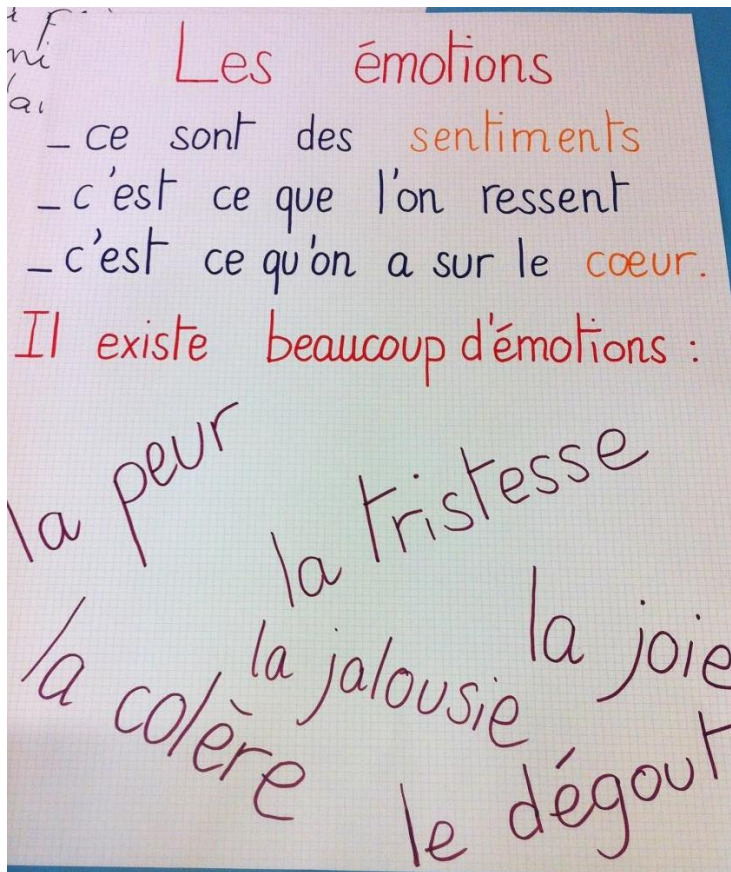 Les émotions
_ ce sont des sentiments
_ c'est ce que l'on ressent
_ c'est ce qu'on a sur le cœur.
Il existe beaucoup d'émotions :
la peur
la tristesse
la joie
la jalousie
la colère
le dégout